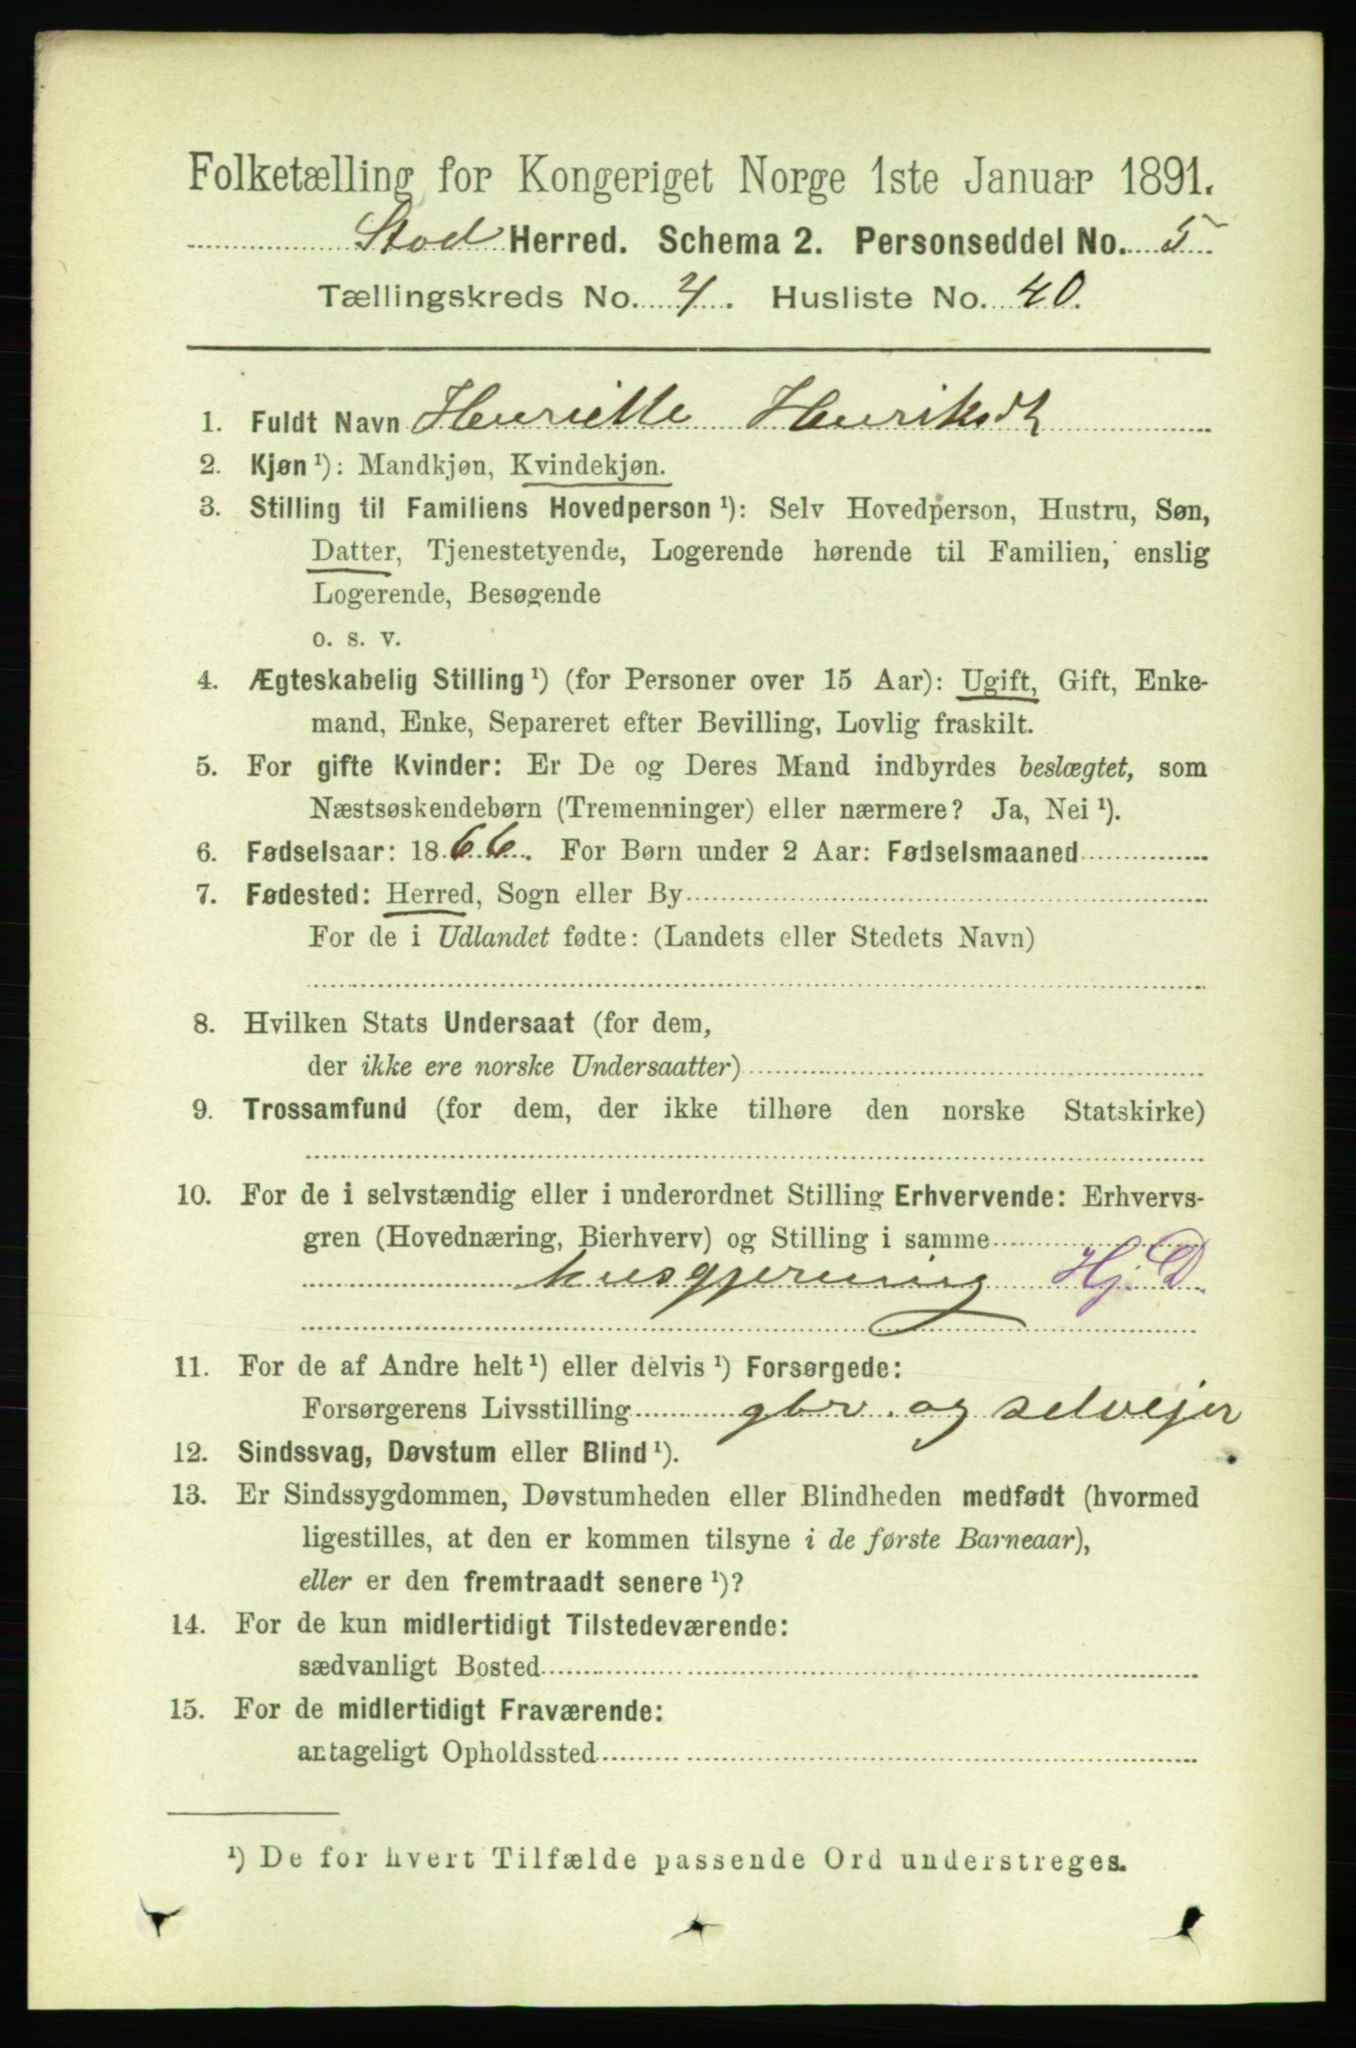 Folketælling for Kongeriget Norge 1ste Januar 1891.
Stod Herred. Schema 2. Personseddel No. 5
Tællingskreds No. 4. Husliste No. 40.
1. Fuldt Navn Henriette Henriksdt
2. Kjøn¹): Mandkjøn, Kvindekjøn.
3. Stilling til Familiens Hovedperson¹): Selv Hovedperson, Hustru, Søn,
Datter, Tjenestetyende, Logerende hørende til Familien, enslig
Logerende, Besøgende
o. s. v.
4. Ægteskabelig Stilling¹) (for Personer over 15 Aar): Ugift, Gift, Enke-
mand, Enke, Separeret efter Bevilling, Lovlig fraskilt.
5. For gifte Kvinder: Er De og Deres Mand indbyrdes beslægtet, som
Næstsøskendebørn (Tremenninger) eller nærmere? Ja, Nei¹).
6. Fødselsaar: 1866. For Børn under 2 Aar: Fødselsmaaned
7. Fødested: Herred, Sogn eller By
For de i Udlandet fødte: (Landets eller Stedets Navn)
8. Hvilken Stats Undersaat (for dem,
der ikke ere norske Undersaatter)
9. Trossamfund (for dem, der ikke tilhøre den norske Statskirke)
10. For de i selvstændig eller i underordnet Stilling Erhvervende: Erhvervs-
gren (Hovednæring, Bierhverv) og Stilling i samme
husgjerning Hj. D.
11. For de af Andre helt¹) eller delvis¹) Forsørgede:
Forsørgerens Livsstilling gbr. og selvejer
12. Sindssvag, Døvstum eller Blind¹).
13. Er Sindssygdommen, Døvstumheden eller Blindheden medfødt (hvormed
ligestilles, at den er kommen tilsyne i de første Barneaar),
eller er den fremtraadt senere¹)?
14. For de kun midlertidigt Tilstedeværende:
sædvanligt Bosted
15. For de midlertidigt Fraværende:
antageligt Opholdssted
¹) De for hvert Tilfælde passende Ord understreges.